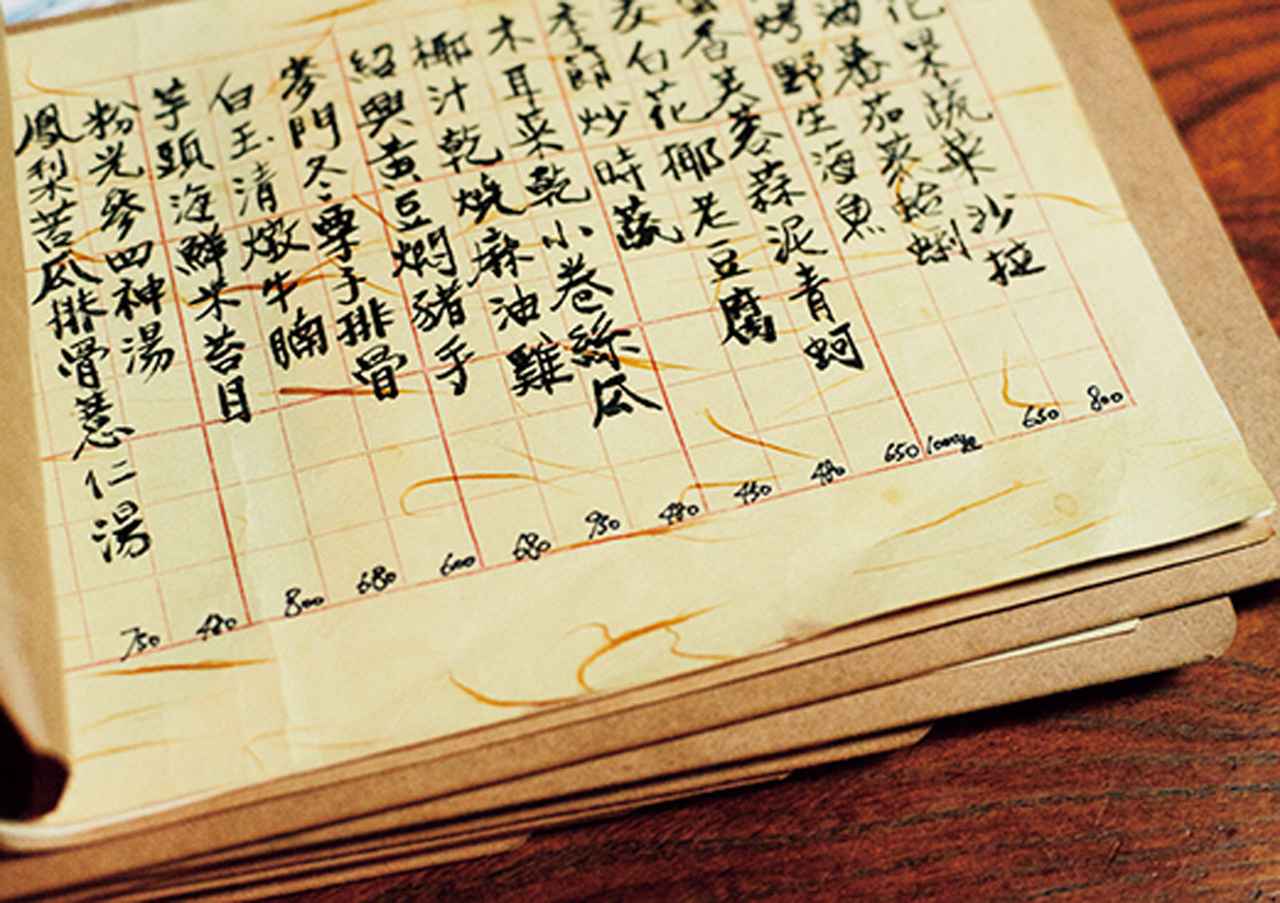 花果蔬菜沙拉 800
油番茄蒸蛤蜊 650
烤野生海魚 1000起
香芙蓉蒜泥青蚵 650
白花椰老豆腐 480
季節炒時蔬 450
木耳菜乾小卷絲瓜 480
椰汁乾燒麻油雞 950
紹興黃豆燜豬手 680
麥門冬栗子排骨 600
白玉清燉牛腩 680
芋頭海鮮米苔目 800
粉光參四神湯 480
鳳梨苦瓜排骨薏仁湯 750